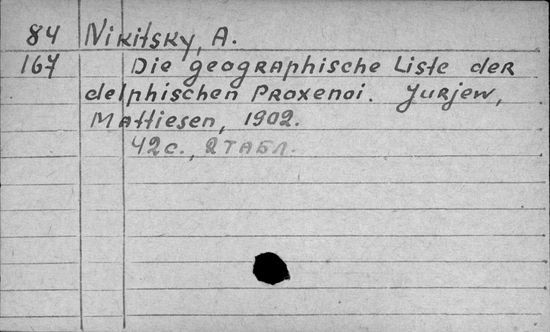 84 Nikitsky, A.
167 Die geographische Liste der
delphischen Proxenoi. Jurjew,
Mattiesen, 1902.
42с., 2 табл.